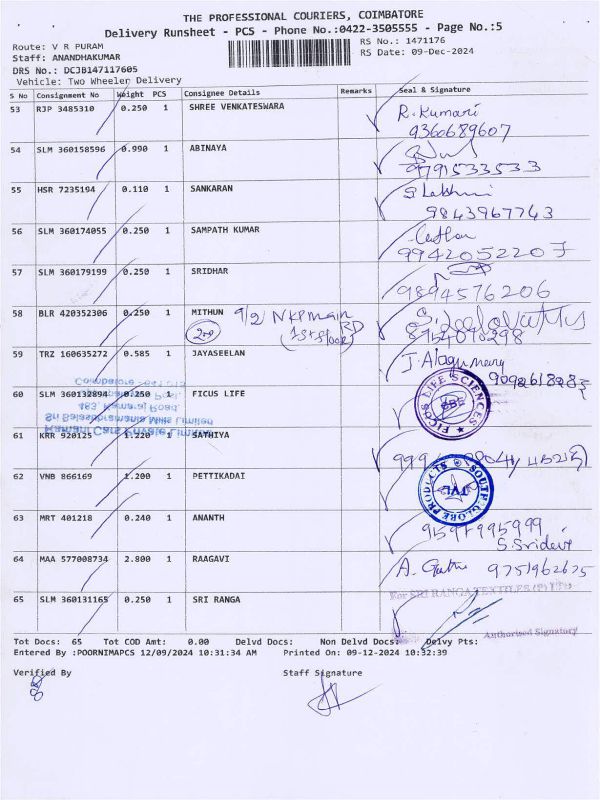 THE PROFESSIONAL COURIERS, COIMBATORE
Delivery Runsheet - PCS - Phone No.:0422-3505555 - Page No.:5
Route: V R PURAM
RS No.: 1471176
Staff: ANANDHAKUMAR
RS Date: 09-Dec-2024
DRS No.: DCJB147117605
Vehicle: Two Wheeler Delivery
S No Consignment No Weight PCS Consignee Details Remarks Seal & Signature
53 RJP 3485310 0.250 1 SHREE VENKATESWARA R. Kumari
9360689607
54 SLM 360158596 0.990 1 ABINAYA
9791533533
55 HSR 7235194 0.110 1 SANKARAN S Lakshmi
9843967743
56 SLM 360174055 0.250 1 SAMPATH KUMAR
9942052207
57 SLM 360179199 0.250 1 SRIDHAR
9894576206
58 BLR 420352306 0.250 1 MITHUN 9/2 NKP main RD
(1st floor)
8754070298
59 TRZ 160635272 0.585 1 JAYASEELAN
60 SLM 360132894 0.250 1 FICUS LIFE
FICUS LIFE SCIENCES
Coimbatore - 641
483, Kamaraj Road,
Sri Balasubramania Mills Limited
Ramani Cars Private Limited
61 KRR 920125 1.220 1 SATHIYA
62 VNB 866169 1.200 1 PETTIKADAI
SOUTH GLOBE PRODUCTS
63 MRT 401218 0.240 1 ANANTH 9597995999
S. Sridevi
64 MAA 577008734 2.800 1 RAAGAVI 9751962675
For SRI RANGA TEXTILES (P) LTD
65 SLM 360131165 0.250 1 SRI RANGA
Authorised Signatory
Tot Docs: 65 Tot COD Amt: 0.00 Delvd Docs: Non Delvd Docs: Delvy Pts:
Entered By :POORNIMAPCS 12/09/2024 10:31:34 AM Printed On: 09-12-2024 10:32:39
Verified By Staff Signature